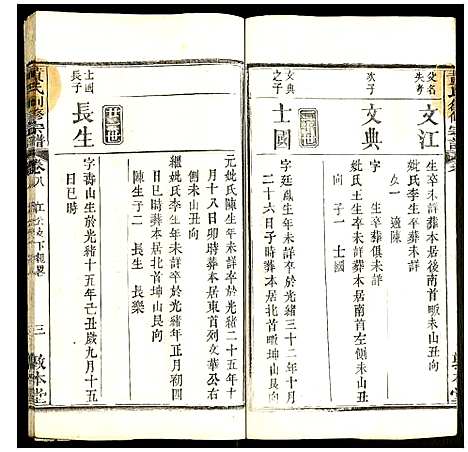 父名失考
文江
生卒未詳葬本居後南首未山丑向
妣氏李生卒未詳葬未詳
女一 適陳
次子
文典
生卒葬俱未詳
妣氏王生卒未詳葬本居南首左側未山丑
向 子一 士國
文典之子
士國
字廷 生年未詳卒於光緒三十二年十月
二十六日子時葬本居北首 艮向
元妣氏陳生年未詳卒於光緒二十五年十
月十八日卯時葬本居東首列文華公右
側未山丑向
繼妣氏李生年未詳卒於光緒 年正月初四
日巳時葬本居北首坤山艮向
陳生子二 長生 長樂
世
士國長子
長生
字壽山生於光緒十五年己丑歲九月十五
日巳時
黃氏 修宗譜
卷八
三
敦本堂